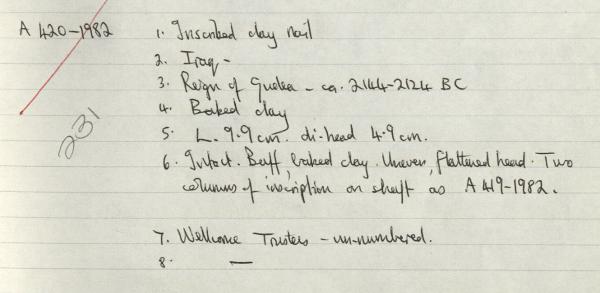 A 420-1982 1. Inscribed clay nail
2. Iraq -
3. Reign of Gudea - ca. 2144-2124 BC
4. Baked clay
5. L. 9.9 cm. di-head 4.9 cm.
231
6. Intact. Buff, baked clay. Uneven, flattened head. Two
columns of inscription on shaft as A 419-1982.
7. Wellcome Trustees - un-numbered.
8. —